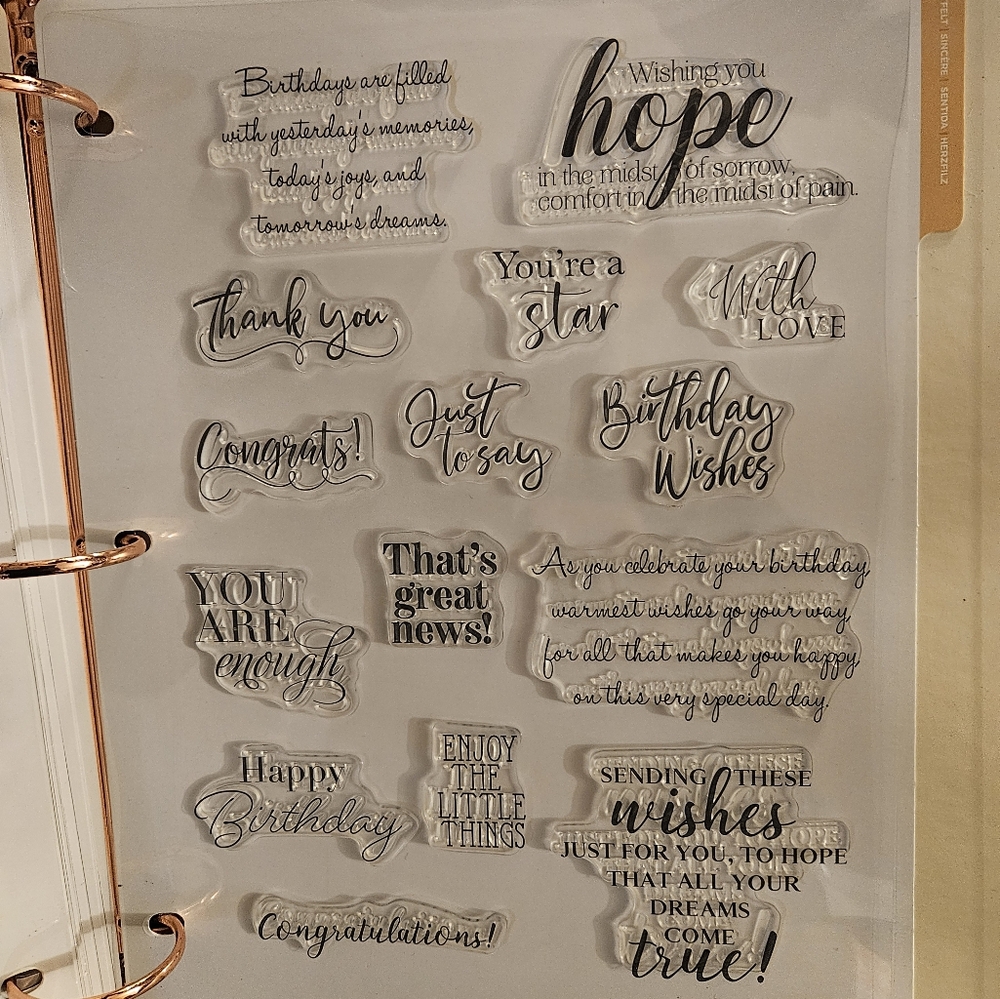 Birthdays are filled
with yesterday's memories,
today's joys, and
tomorrow's dreams.
Wishing you
hope
in the midst of sorrow,
comfort in the midst of pain.
Thank you
You're a
star
With
LOVE
Congrats!
Just
to say
Birthday
Wishes
YOU
ARE
enough
That's
great
news!
As you celebrate your birthday,
warmest wishes go your way,
for all that makes you happy,
on this very special day.
Happy
Birthday
ENJOY
THE
LITTLE
THINGS
SENDING THESE
wishes
JUST FOR YOU, TO HOPE
THAT ALL YOUR
DREAMS
COME
true!
Congratulations!
FELT | SINCÈRE | SENTIDA | HERZFILZ